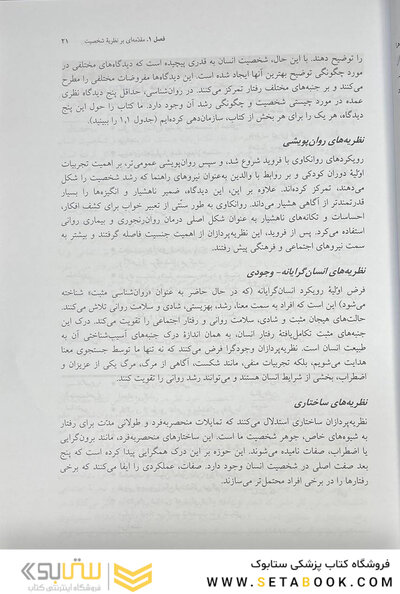 فصل ۱. مقدّمه‌ای بر نظریهٔ شخصیت ۲۱
را توضیح دهند. با این حال، شخصیت انسان به قدری پیچیده است که دیدگاه‌های مختلفی در
مورد چگونگی توضیح بهترین آنها ایجاد شده است. این دیدگاه‌ها مفروضات مختلفی را مطرح
می‌کنند و بر جنبه‌های مختلف رفتار تمرکز می‌کنند. در روان‌شناسی، حداقل پنج دیدگاه نظری
عمده در مورد چیستی شخصیت و چگونگی رشد آن وجود دارد. ما کتاب را حول این پنج
دیدگاه، هر یک را برای هر بخش از کتاب، سازمان‌دهی کرده‌ایم (جدول ۱.۱ را ببینید)
نظریه‌های روان‌پویشی
رویکردهای روانکاوی با فروید شروع شد، و سپس روان‌پویشی عمومی‌تر، بر اهمیت تجربیات
اولیهٔ دوران کودکی و بر روابط با والدین به‌عنوان نیروهای راهنما که رشد شخصیت را شکل
می‌دهند، تمرکز کرده‌اند. علاوه بر این، این دیدگاه، ضمیر ناهشیار و انگیزه‌ها را بسیار
قدرتمندتر از آگاهی هشیار می‌داند. روانکاوی به طور سنّتی از تعبیر خواب برای کشف افکار،
احساسات و تکانه‌های ناهشیار به عنوان شکل اصلی درمان روان‌رنجوری و بیماری روانی
استفاده می‌کرد. پس از فروید، این نظریه‌پردازان از اهمیت جنسیت فاصله گرفتند و بیشتر به
سمت نیروهای اجتماعی و فرهنگی پیش رفتند.
نظریه‌های انسان‌گرایانه- وجودی
فرض اولیهٔ رویکرد انسان‌گرایانه (که در حال حاضر به عنوان «روان‌شناسی مثبت» شناخته
می‌شود) این است که افراد به سمت معنا، رشد، بهزیستی، شادی و سلامت روانی تلاش می‌کنند.
حالت‌های هیجان مثبت و شادی، سلامت روانی و رفتار اجتماعی را تقویت می‌کند. درک این
جنبه‌های مثبت تکامل‌یافتهٔ رفتار انسان، به همان اندازهٔ درک جنبه‌های آسیب‌شناختی آن به
طبیعت انسان است. نظریه‌پردازان وجودگرا فرض می‌کنند که نه تنها ما توسط جستجوی معنا
هدایت می‌شویم، بلکه تجربیات منفی، مانند شکست، آگاهی از مرگ، مرگ یکی از عزیزان و
اضطراب، بخشی از شرایط انسان هستند و می‌توانند رشد روانی را تقویت کنند.
نظریه‌های ساختاری
نظریه‌پردازان ساختاری استدلال می‌کنند که تمایلات منحصربه‌فرد و طولانی مدّت برای رفتار
به شیوه‌های خاص، جوهر شخصیت ما است. این ساختارهای منحصربه‌فرد، مانند برون‌گرایی
یا اضطراب، صفات نامیده می‌شوند. این حوزه بر این درک همگرایی پیدا کرده است که پنج
بعد صفت اصلی در شخصیت انسان وجود دارد. صفات، عملکردی را ایفا می‌کنند که برخی
رفتارها را در برخی افراد محتمل‌تر می‌سازند.
فروشگاه کتاب پزشکی ستابوک
WWW.SETABOOK.COM
ستابوک
فروشگاه اینترنتی کتاب